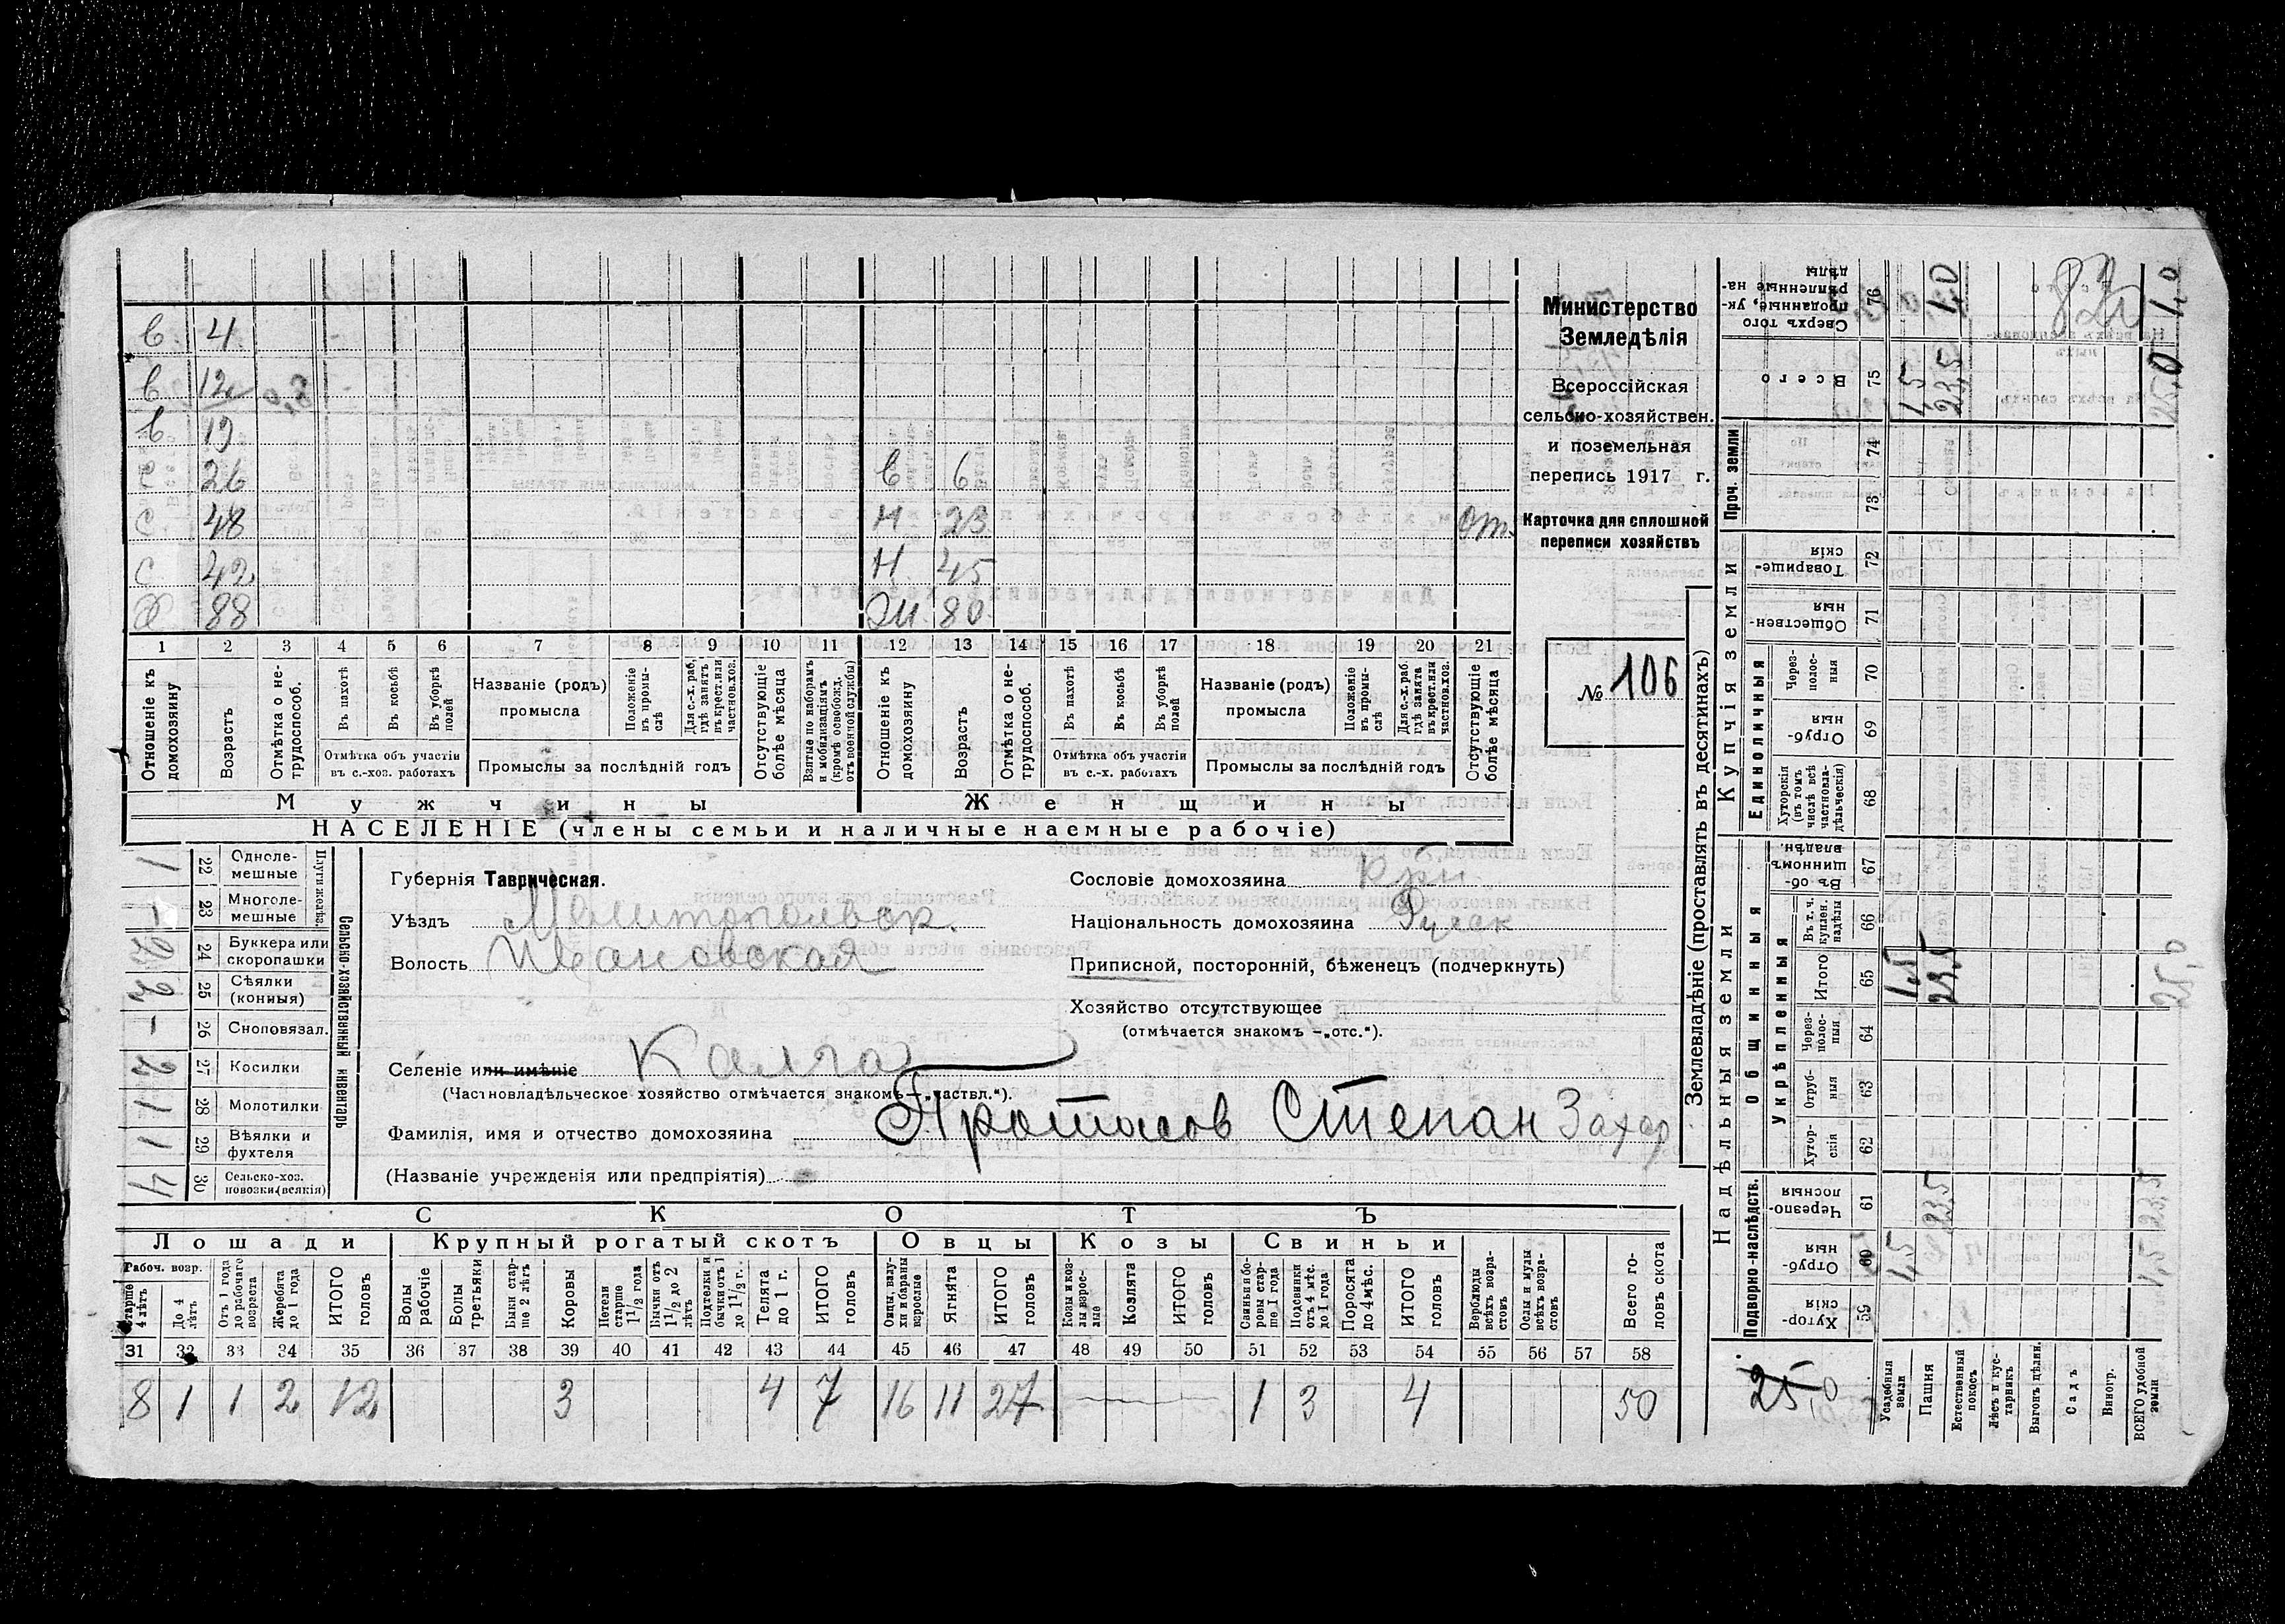 С 4
С 12
С 19
С 26 С 6
С 48 Н 23 от.
С 42 Н 45
Х 88 Ж 80
1 2 3 4 5 6 7 8 9 10 11 12 13 14 15 16 17 18 19 20 21
Отношеніе къ домохозяину
Возрастъ
Отмѣтка о нетрудоспособ.
Въ пахотѣ
Въ косьбѣ
Въ уборкѣ полей
Отмѣтка объ участіи въ с.-хоз. работахъ
Названіе (родъ) промысла
Положеніе въ промыслѣ
Для с.-х. раб, гдѣ занятъ въ крест. или частнов. хоз.
Промыслы за послѣдній годъ
Отсутствующіе болѣе мѣсяца
Взятые по наборамъ и мобилизаціямъ (кромѣ освобожд. отъ военной службы)
Отношеніе къ домохозяину
Возрастъ
Отмѣтка о нетрудоспособ.
Въ пахотѣ
Въ косьбѣ
Въ уборкѣ полей
Отмѣтка объ участіи въ с.-х. работахъ
Названіе (родъ) промысла
Положеніе въ промыслѣ
Для с.-х. раб. гдѣ занята въ крест. или частнов. хоз.
Промыслы за послѣдній годъ
Отсутствующіе болѣе мѣсяца
Мужчины Женщины
НАСЕЛЕНІЕ (члены семьи и наличные наемные рабочіе)
Министерство
Земледѣлія
Всероссійская
сельско-хозяйствен.
и поземельная
перепись 1917 г.
Карточка для сплошной
переписи хозяйствъ
№ 106
Сельско-хозяйственный инвентарь
Плуги желѣз.
1 22 Однолемешные
- 23 Многолемешные
2 24 Буккера или скоропашки
2 25 Сѣялки (конныя)
- 26 Сноповязал.
2 27 Косилки
1 28 Молотилки
1 29 Вѣялки и фухтеля
4 30 Сельско-хоз. повозки (всякія)
Губернія Таврическая.
Уѣздъ Мелитопольск.
Волость Ивановская
Сословіе домохозяина Крн.
Національность домохозяина Русск
Приписной, посторонній, бѣженец (подчеркнуть)
Хозяйство отсутствующее
(отмѣчается знакомъ –„отс.“).
Селеніе или имѣніе Калга
(Частновладѣльческое хозяйство отмѣчается знакомъ–„частвл.“).
Фамилія, имя и отчество домохозяина Протасов Степан Захар
(Названіе учрежденія или предпріятія)
СКОТЪ
Лошади Крупный рогатый скотъ Овцы Козы Свиньи
Рабоч. возр.
Старше 4 лѣтъ
До 4 лѣтъ
Отъ 1 года до рабочаго возраста
Жеребята до 1 года
ИТОГО головъ
Волы рабочіе
Волы третьяки
Быки старше 2 лѣтъ
Коровы
Нетели старше 1 1/2 года
Бычки отъ 1 1/2 до 2 лѣтъ
Подтелки и бычки отъ 1 до 1 1/2 г.
Телята до 1 г.
ИТОГО головъ
Овцы, валухи и бараны взрослые
Ягнята
ИТОГО головъ
Козы и козлы взрослые
Козлята
ИТОГО головъ
Свиньи и боровы старше 1 года
Подсвинки отъ 4 мѣс. до 1 года
Поросята до 4 мѣс.
ИТОГО головъ
Верблюды всѣхъ возрастовъ
Ослы и мулы всѣхъ возрастовъ
Всего головъ скота
31 32 33 34 35 36 37 38 39 40 41 42 43 44 45 46 47 48 49 50 51 52 53 54 55 56 57 58
8 1 1 2 12 3 4 7 16 11 27 — — — 1 3 4 50
Землевладѣніе (проставлять въ десятинахъ)
Надѣльныя земли Купчія земли Проч. земли
Подворно-наслѣдств. Общинныя Единоличныя
Укрѣпленныя
Хуторскія 59
Отрубныя 60
Черезполосныя 61
Хуторскія 62
Отрубныя 63
Черезполосныя 64
Итого 65
Въ т. ч. куплен. надѣлы 66
Въ общинномъ владѣн. 67
Хуторскія (въ томъ числѣ всѣ частновладѣльческія) 68
Отрубныя 69
Черезполосныя 70
Общественныя 71
Товарищескія 72
73
74
Всего 75
Сверхъ того проданные, укрѣпленные надѣлы 76
25,0
Усадебныя земли 1,5 1,5 1,5
Пашня 23,5 23,5 23,5 1,0
Естественный покосъ
Лѣсъ и кустарникъ
Выгонъ цѣлин.
Садъ
Виногр.
ВСЕГО удобной земли 1,5 23,5 25,0 25,0 1,0